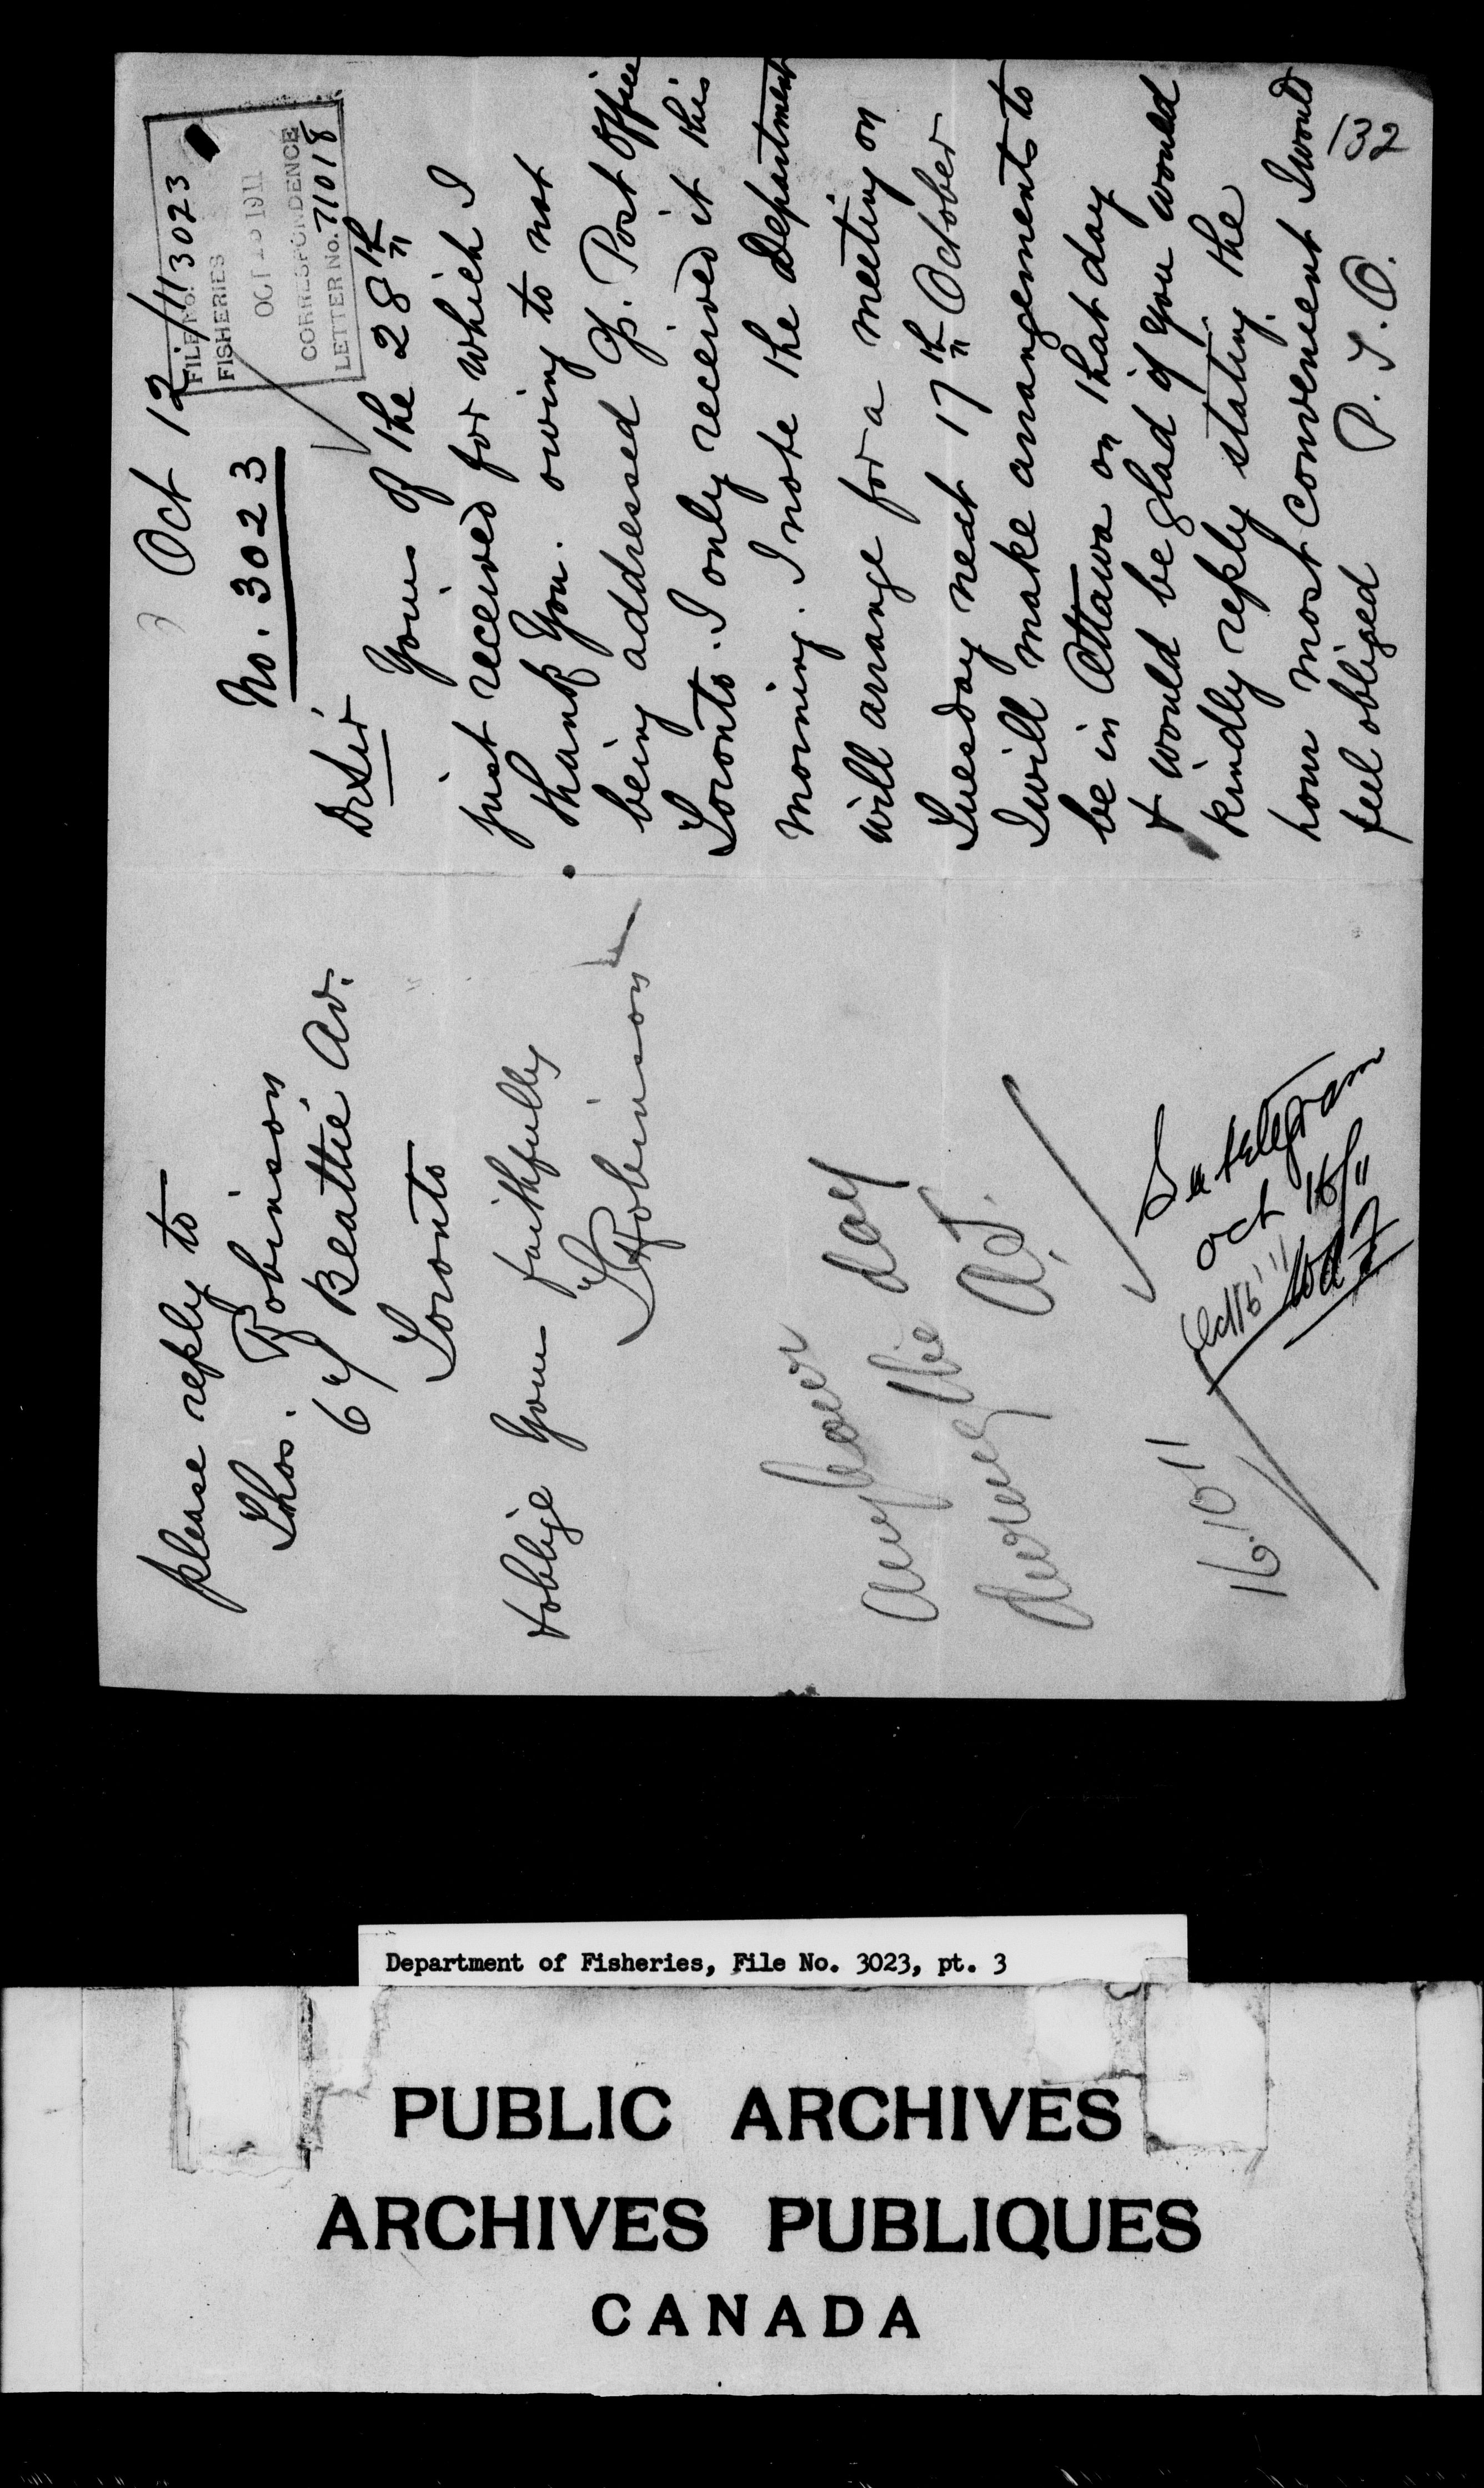 Oct 12/11
No. 3023
FILE No. 3023
FISHERIES
OCT 1911
CORRESPONDENCE
LETTER No. 71018
Dr Sir
Yours of the 28th
just received for which I
thank you. owing to not
being addressed G. Post Office
Toronto. I only received it this
morning. I note the Department
will arrange for a meeting on
Tuesday next 17th October
I will make arrangements to
be in Ottawa on that day
& would be glad if you would
kindly reply stating the
hour most convenient I would
feel obliged P. T. O.
132
please reply to
Thos. Robinson
67 Beattie Av.
Toronto
& oblige Yours faithfully
T Robinson
Any hour day
16.10.11
telegram
Oct 16/11
Department of Fisheries, File No. 3023, pt. 3
PUBLIC ARCHIVES
ARCHIVES PUBLIQUES
CANADA